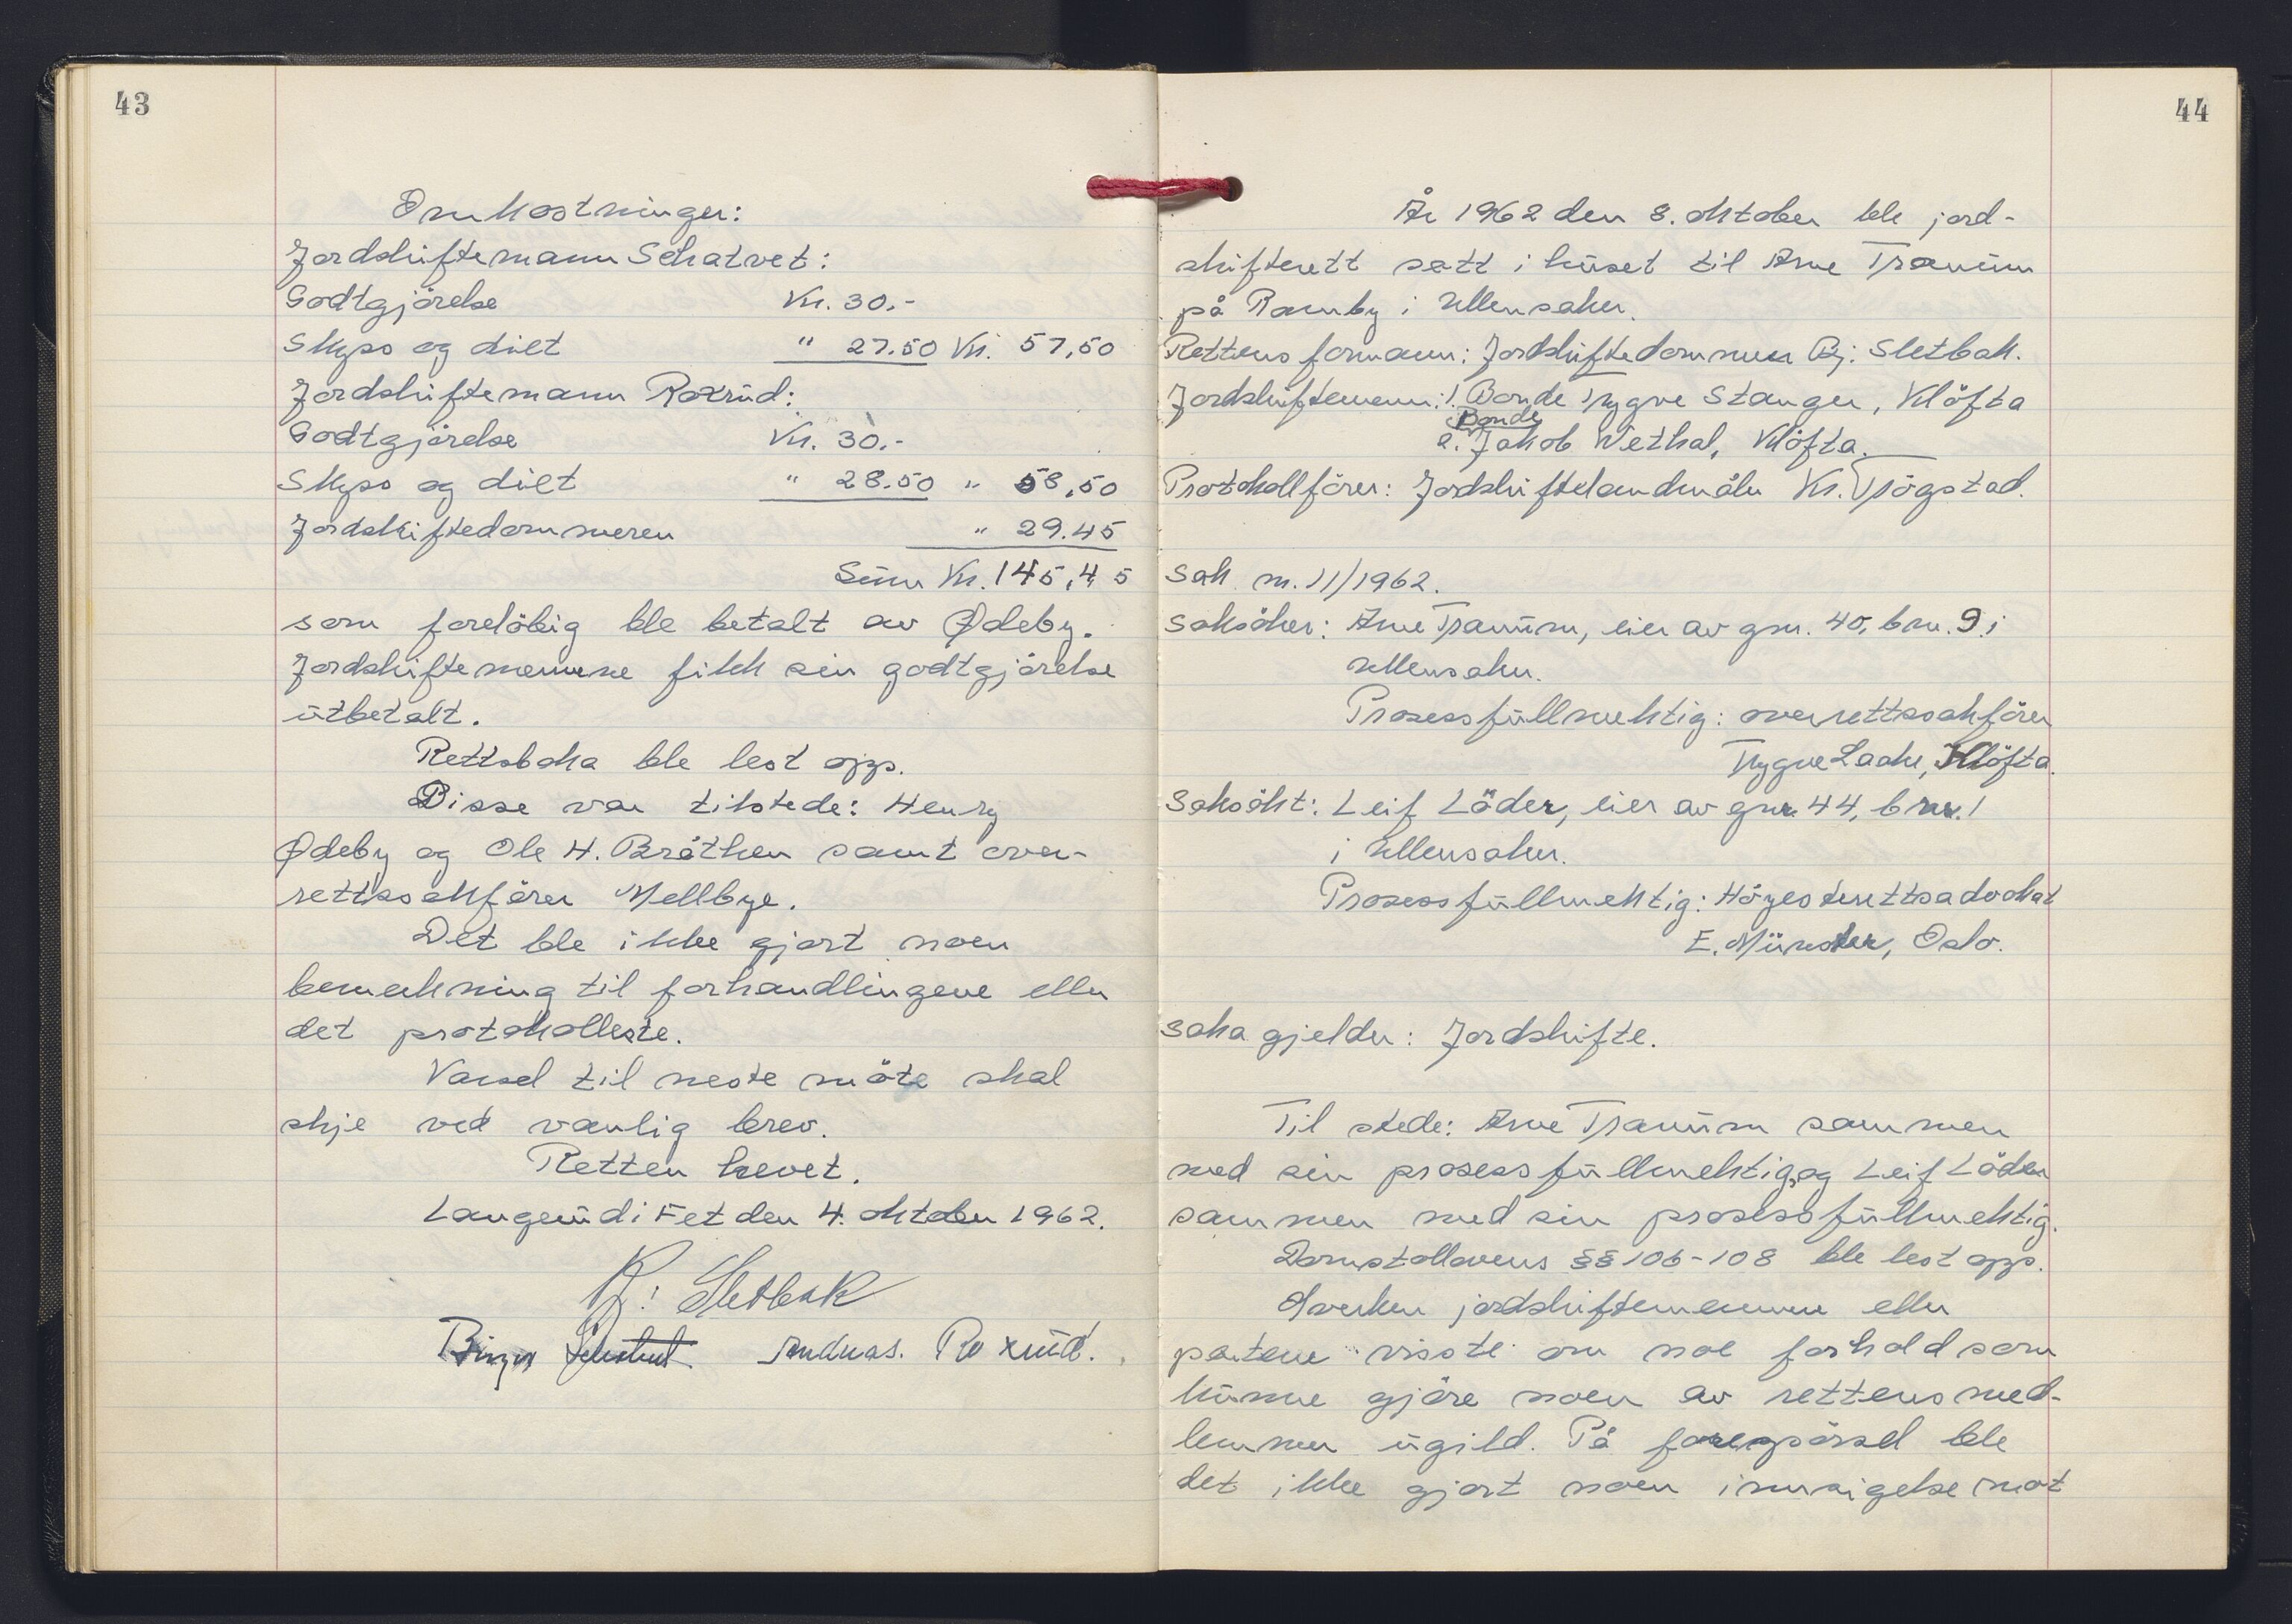 43
Omkostninger:
Jordskiftemann Schatvet:
Godtgjörelse Kr. 30.-
Skyss og diett " 27.50 Kr. 57,50
Jordskiftemann Roxrud:
Godtgjörelse Kr. 30.-
Skyss og diett " 28.50 " 58,50
Jordskiftedommeren " 29.45
Sum Kr. 145,45
som forelöbig ble betalt av Ødeby.
Jordskiftemennene fikk sin godtgjörelse
utbetalt.
Rettsboka ble lest opp.
Disse var tilstede: Henry
Ødeby og Ole H. Bråthen samt over-
rettssakförer Mellbye.
Det ble ikke gjort noen
bemerkning til forhandlingene eller
det protokolleste.
Varsel til neste möte skal
skje ved vanlig brev.
Retten hevet.
Langerud i Fet den 4. oktober 1962.
Bj: Sletbak
Birger Andreas. Roxrud.
44
År 1962 den 8. oktober ble jord-
skifterett satt i huset til Arne Tranum
på Ramby i Ullensaker.
Rettens formann: Jordskiftedommer Bj. Sletbak.
Jordskiftemenn: 1. Bonde Trygve Stanger, Klöfta
Bonde
2. Jakob Wethal, Klöfta.
Protokollförer: Jordskiftelandmåler Kr. Trögstad.
Sak nr. 11/1962.
Saksöker: Arne Tranum, eier av gnr. 40, bnr. 9 i
Ullensaker.
Prosessfullmektig: overrettssakförer
Trygve Laake, Klöfta.
Saksökt: Leif Löder, eier av gnr. 44, bnr. 1
i Ullensaker.
Prosessfullmektig: Höyesterettsadvokat
E. Münster, Oslo.
Saka gjelder: Jordskifte.
Til stede: Arne Tranum sammen
med sin prosessfullmektig, og Leif Löder
sammen med sin prosessfullmektig.
Domstollovens §§ 106-108 ble lest opp.
Hverken jordskiftemennene eller
partene visste om noe forhold som
kunne gjöre noen av rettens med-
lemmer ugild. På forespörsel ble
det ikke gjort noen innsigelse mot